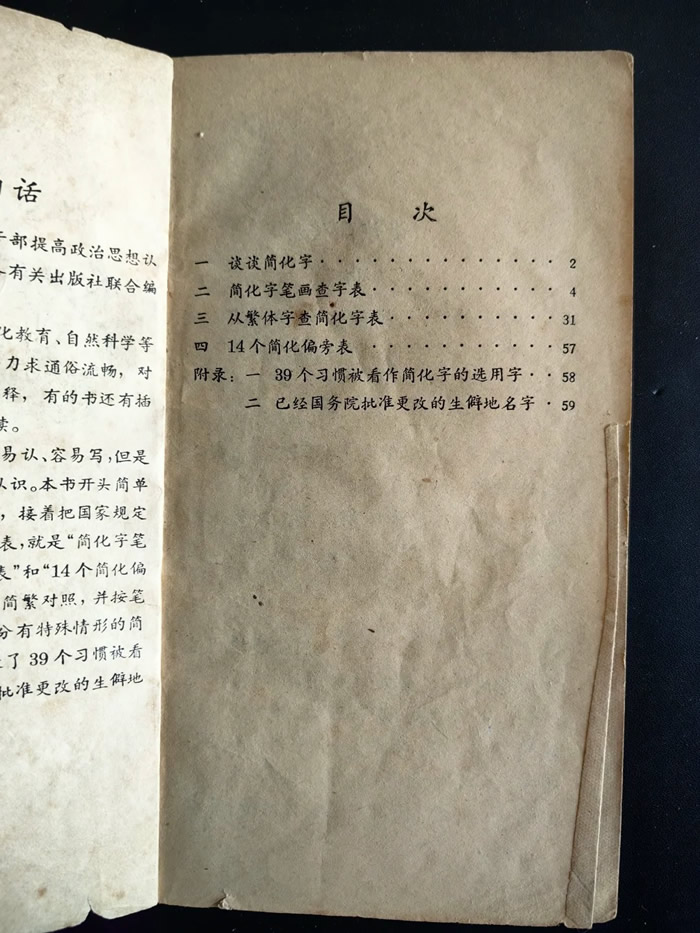 话
干部提高政治思想认
有关出版社联合编
化教育、自然科学等
力求通俗流畅，对
释，有的书还有插
读。
易认、容易写，但是
认识。本书开头简单
，接着把国家规定
表，就是“简化字笔
表”和“14个简化偏
简繁对照，并按笔
分有特殊情形的简
了39个习惯被看
批准更改的生僻地
目 次
一 谈谈简化字 · · · · · · · · · · · · · · 2
二 简化字笔画查字表 · · · · · · · · · · · 4
三 从繁体字查简化字表 · · · · · · · · · · 31
四 14个简化偏旁表 · · · · · · · · · · · 57
附录：一 39个习惯被看作简化字的选用字 · · 58
二 已经国务院批准更改的生僻地名字 · 59